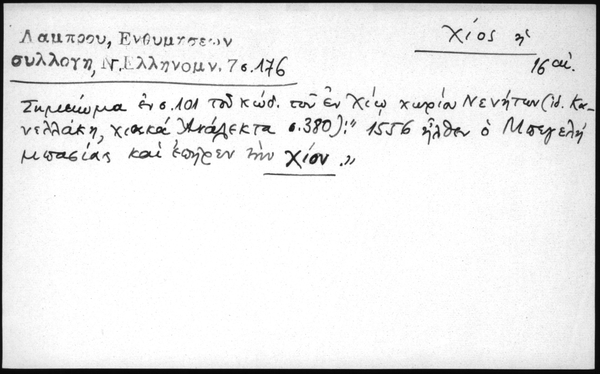 Λαμπρου, Ενθυμησεων
συλλογη, Ν. Ελληνομν. 7 σ. 176
Χίος ἡ
16 αἰ.
Σημείωμα ἐν σ. 101 τοῦ κώδ. τοῦ ἐν Χίῳ χωρίου Νενήτων (ἰδ. Κα-
νελλάκη, χιακά Ἀνάλεκτα σ. 380): " 1556 ἦλθεν ὁ Μπεγελή
μπασίας καὶ ἐπῆρεν τὴν Χίον."